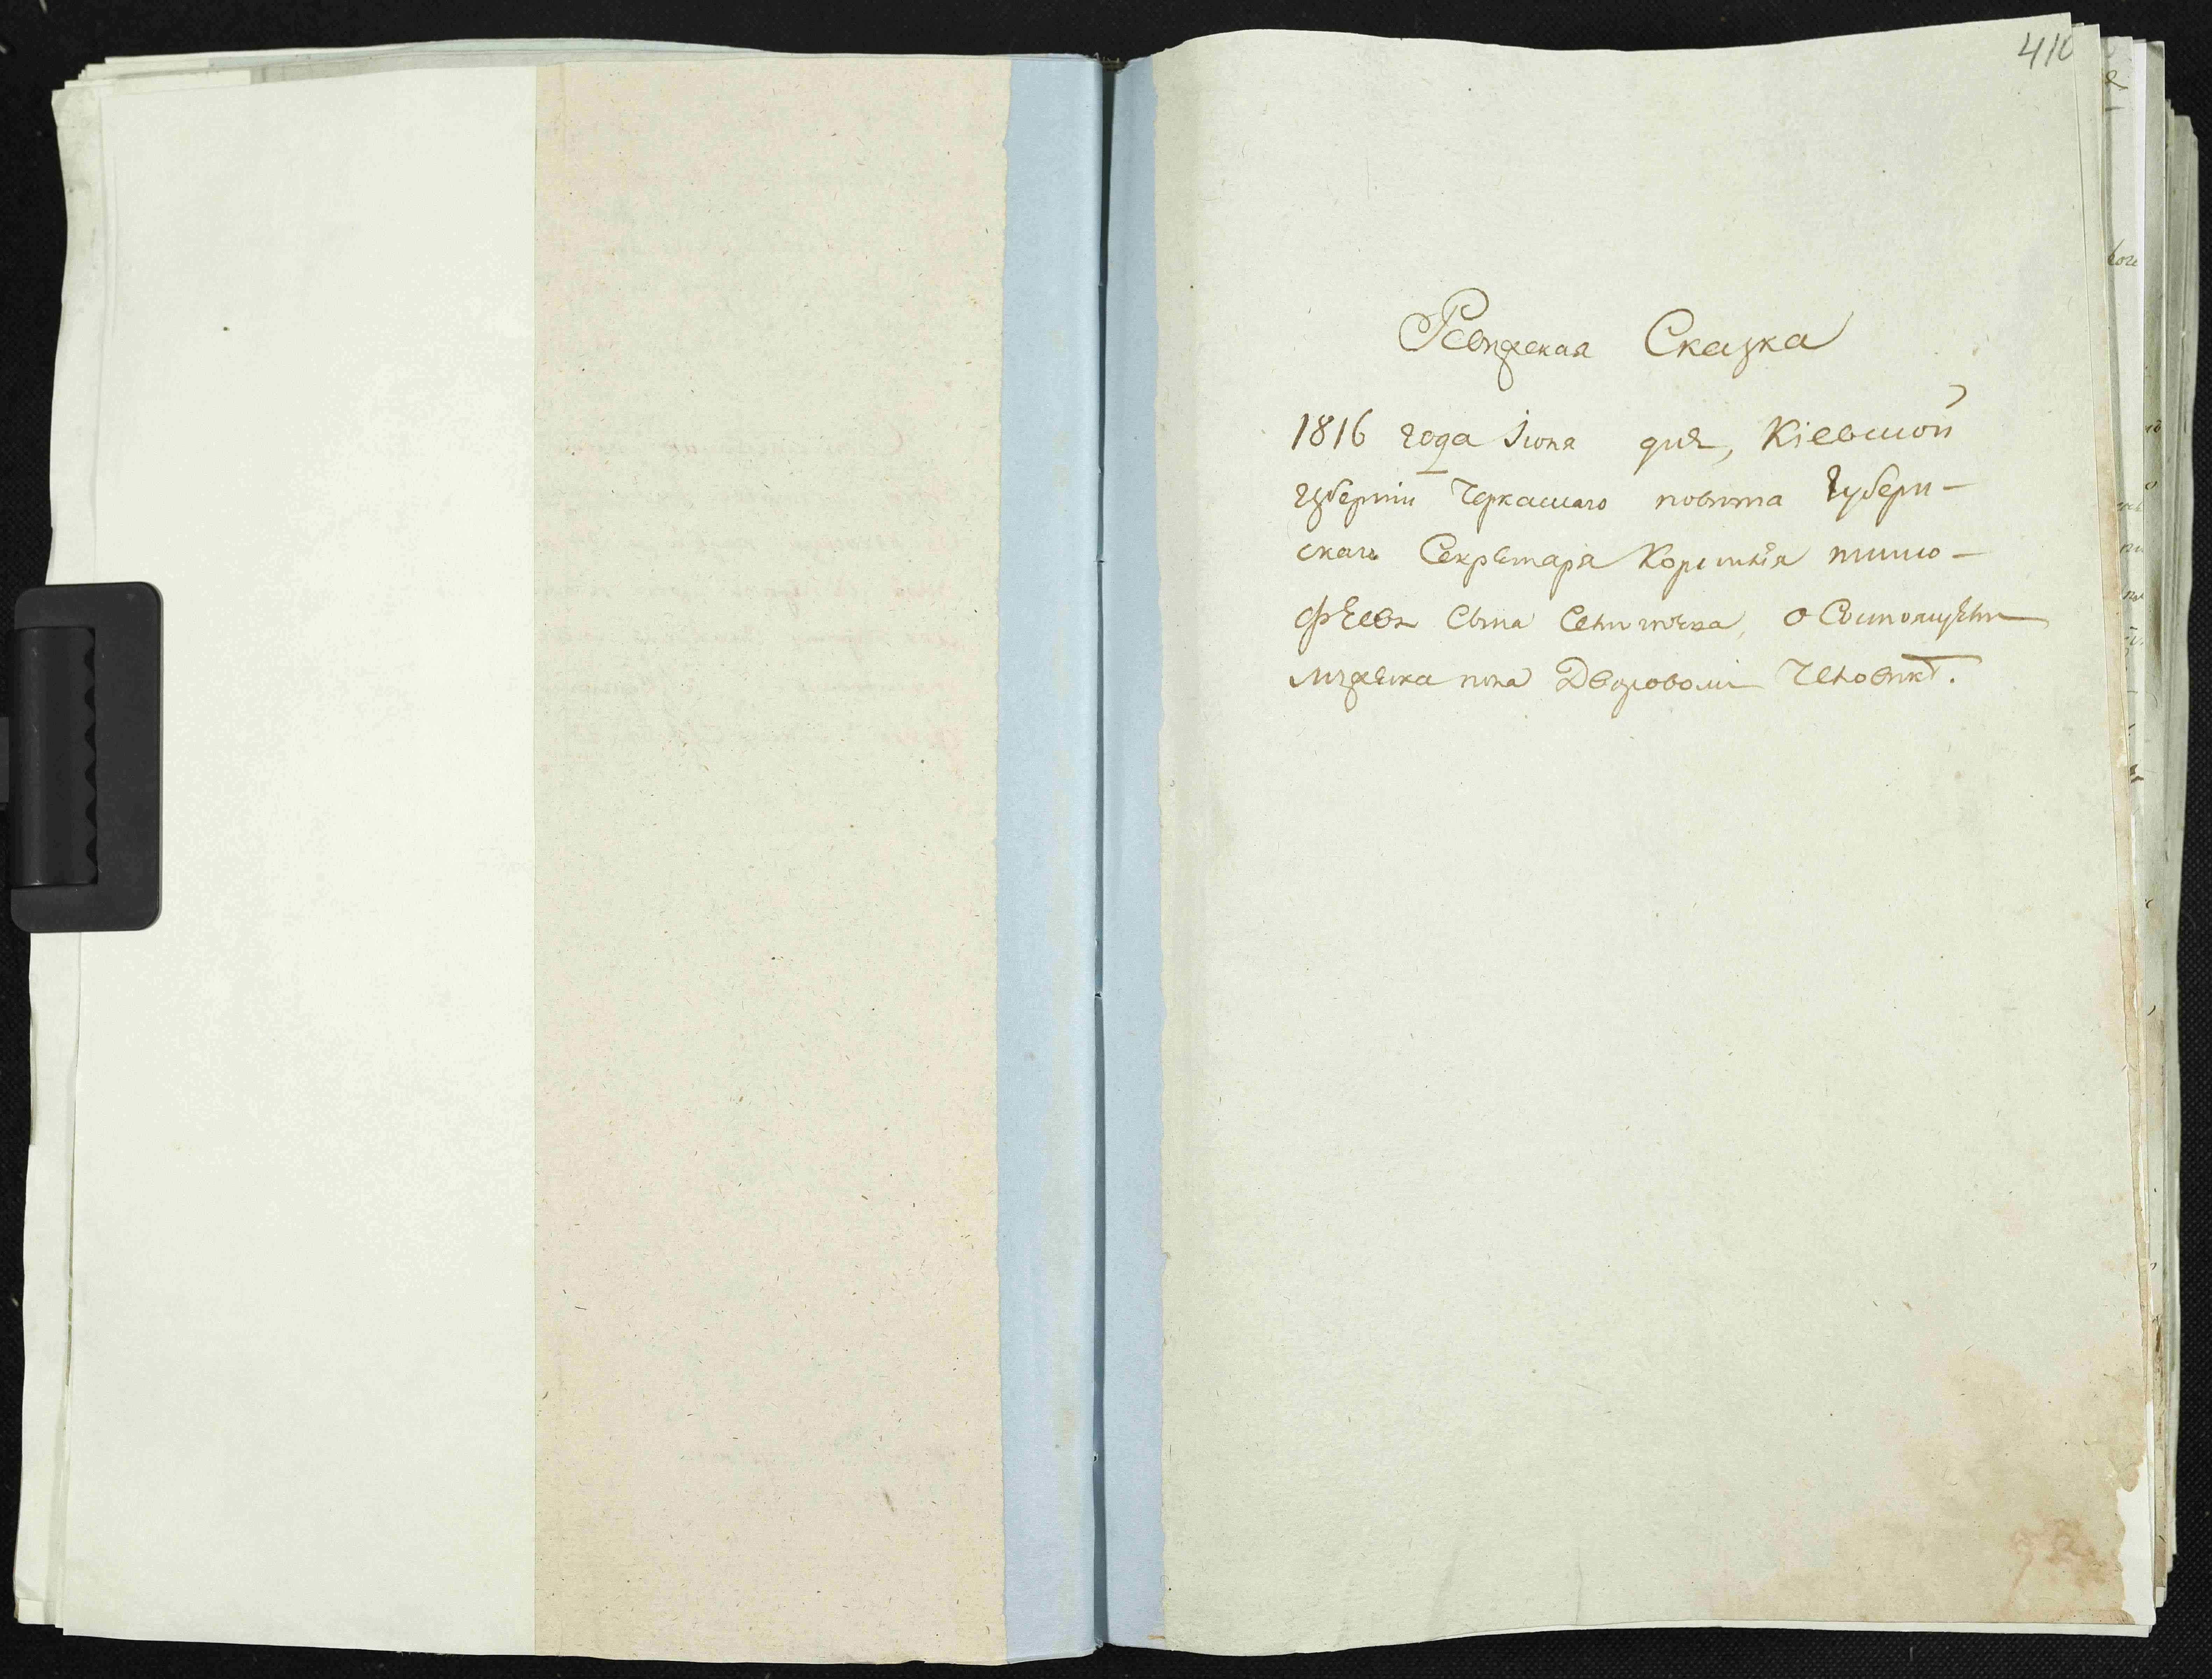 410
Ревизская Сказка
1816 года Іюня дня, Кіевской
губерніи Черкаскаго повѣта Губерн-
скаго Секретаря Корнилія Тимо-
фѣева Сына о Состоящемъ
Дворовомъ Человѣкѣ.